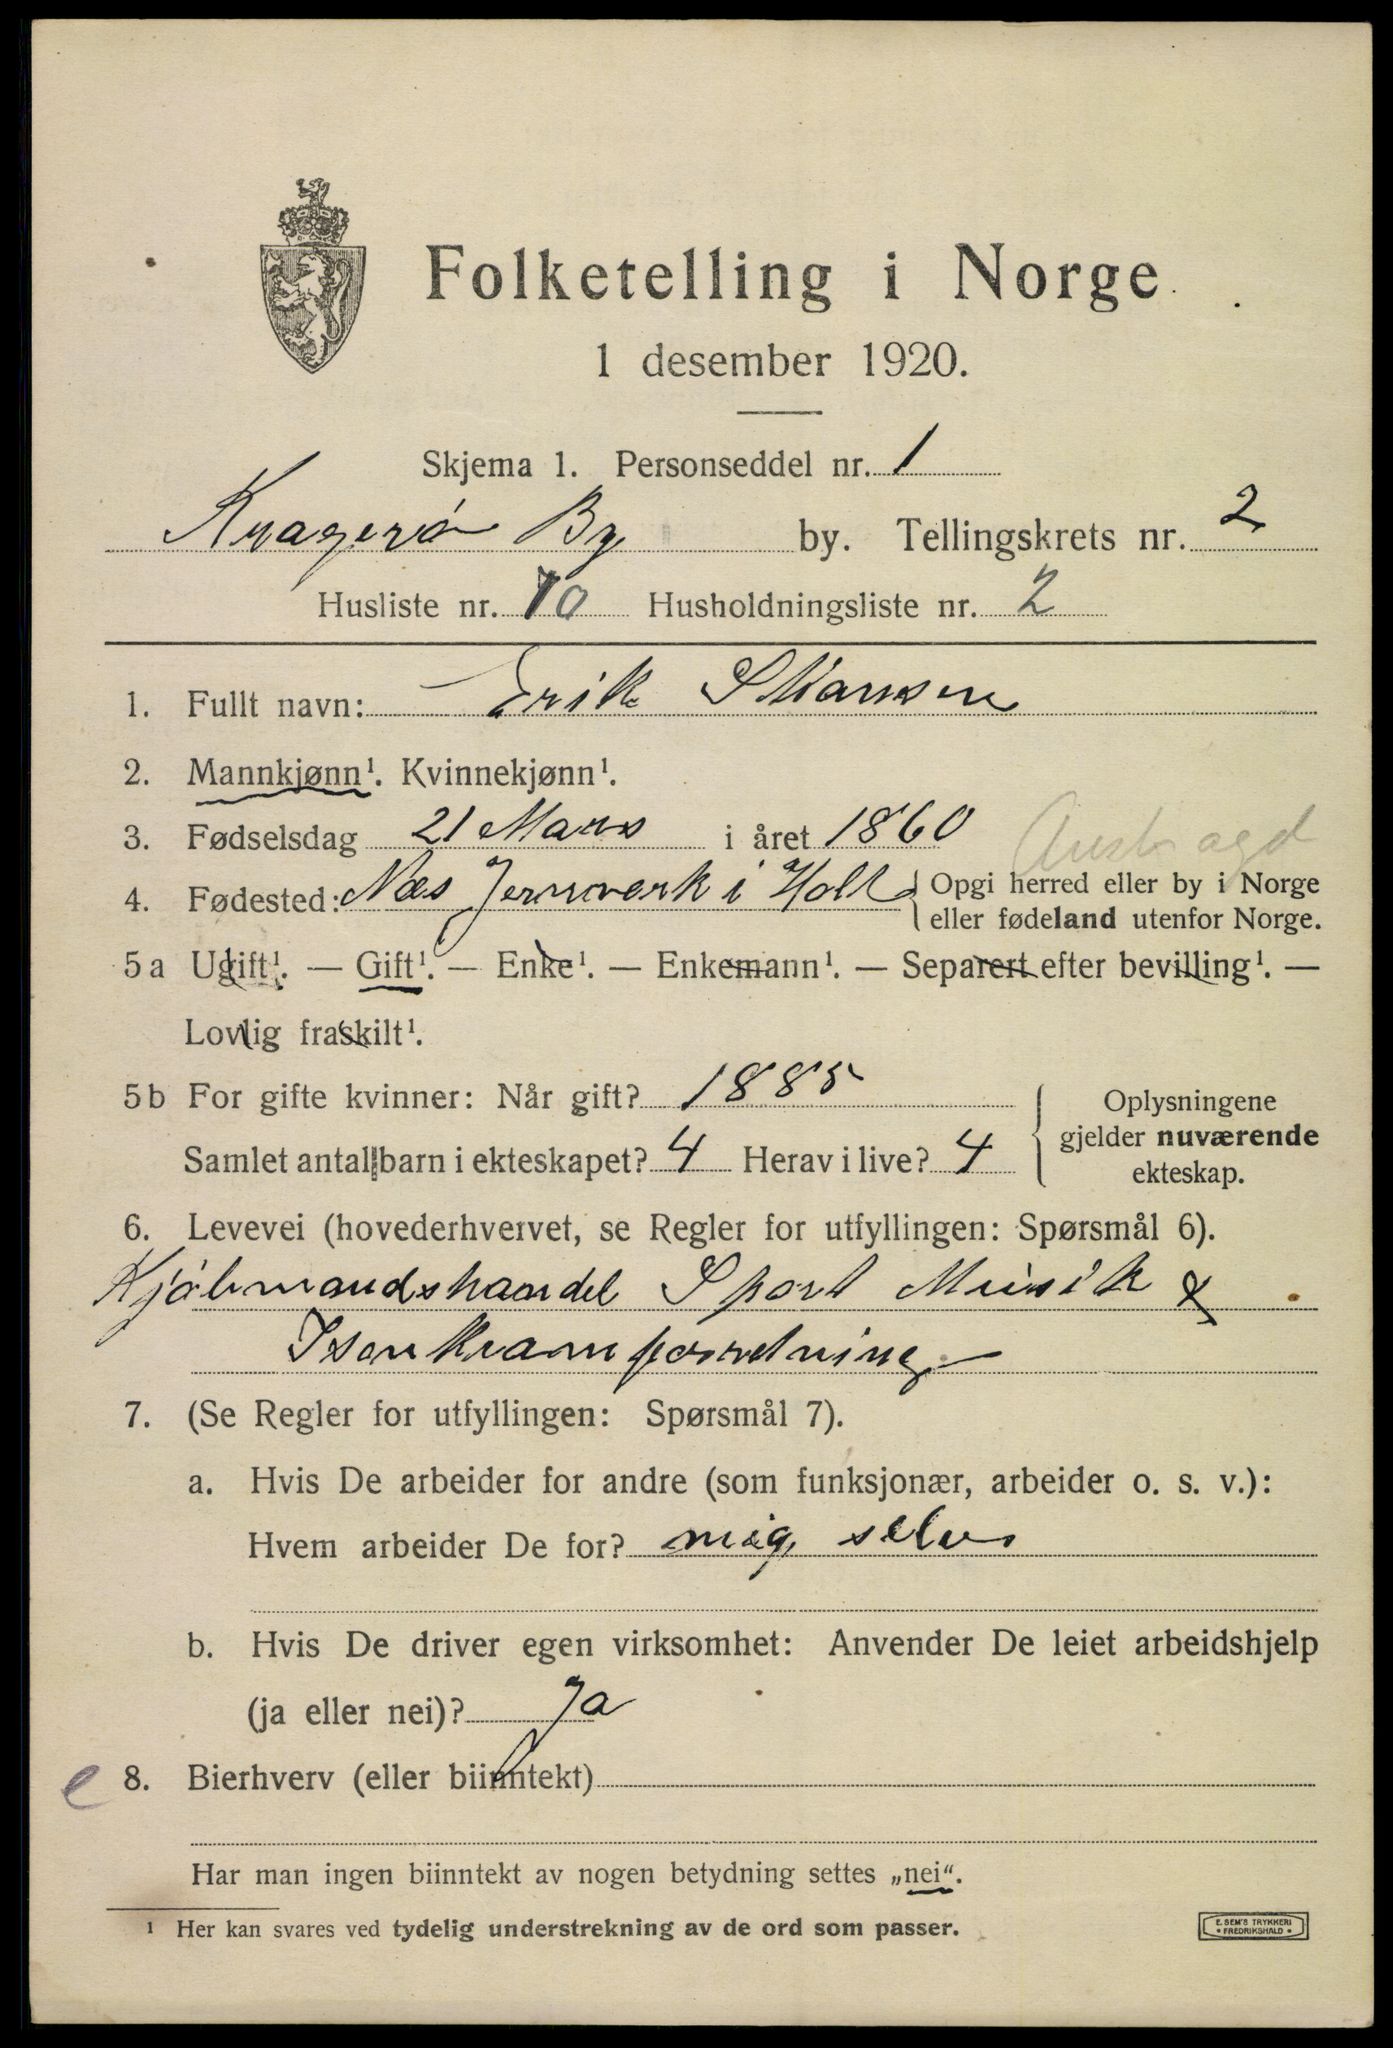 Folketelling i Norge
1 desember 1920.
Skjema 1. Personseddel nr. 1
Kragerø By by. Tellingskrets nr. 2
Husliste nr. 10 Husholdningsliste nr. 2
1. Fullt navn: Erik
2. Mannkjønn¹. Kvinnekjønn¹.
3. Fødselsdag 21 Mars i året 1860
4. Fødested: Næs Jernverk i Holt { Opgi herred eller by i Norge
eller fødeland utenfor Norge.
5a Ugift¹. — Gift¹. — Enke¹. — Enkemann¹. — Separert efter bevilling¹. —
Lovlig fraskilt¹.
5b For gifte kvinner: Når gift? 1885
Samlet antall barn i ekteskapet? 4 Herav i live? 4
Oplysningene
gjelder nuværende
ekteskap.
6. Levevei (hovederhvervet, se Regler for utfyllingen: Spørsmål 6).
Kjöbmandshandel Sport Musik &
Isenkramforretning
7. (Se Regler for utfyllingen: Spørsmål 7).
a. Hvis De arbeider for andre (som funksjonær, arbeider o. s. v.):
Hvem arbeider De for? mig selv
b. Hvis De driver egen virksomhet: Anvender De leiet arbeidshjelp
(ja eller nei)? Ja
e 8. Bierhverv (eller biinntekt)
Har man ingen biinntekt av nogen betydning settes „nei“.
¹ Her kan svares ved tydelig understrekning av de ord som passer.
E. SEM'S TRYKKERI
• FREDRIKSHALD •